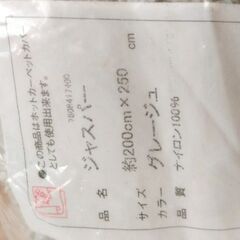 ●この商品はホットカーペットカバー
としても使用出来ます。
7808417400
品名 ジャスパー
サイズ 約200cm×250cm
カラー グレージュ
品質 ナイロン100%